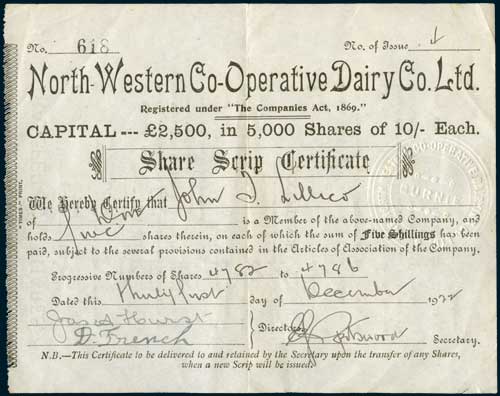 No. 618 No. of Issue 1
North-Western Co-Operative Dairy Co. Ltd.
Registered under "The Companies Act, 1869."
CAPITAL --- £2,500, in 5,000 Shares of 10/- Each.
Share Scrip Certificate
We Hereby Certify that John J. Lillico
of is a Member of the above-named Company, and
holds five shares therein, on each of which the sum of Five Shillings has been
paid, subject to the several provisions contained in the Articles of Association of the Company.
Progressive Numbers of Shares 4782 to 4786
Dated this thirty first day of December 1922
Jas. Hurst
D. French
Directors
Secretary.
N.B.—This Certificate to be delivered to and retained by the Secretary upon the transfer of any Shares,
when a new Scrip will be issued.
"TIMES" PRINT.